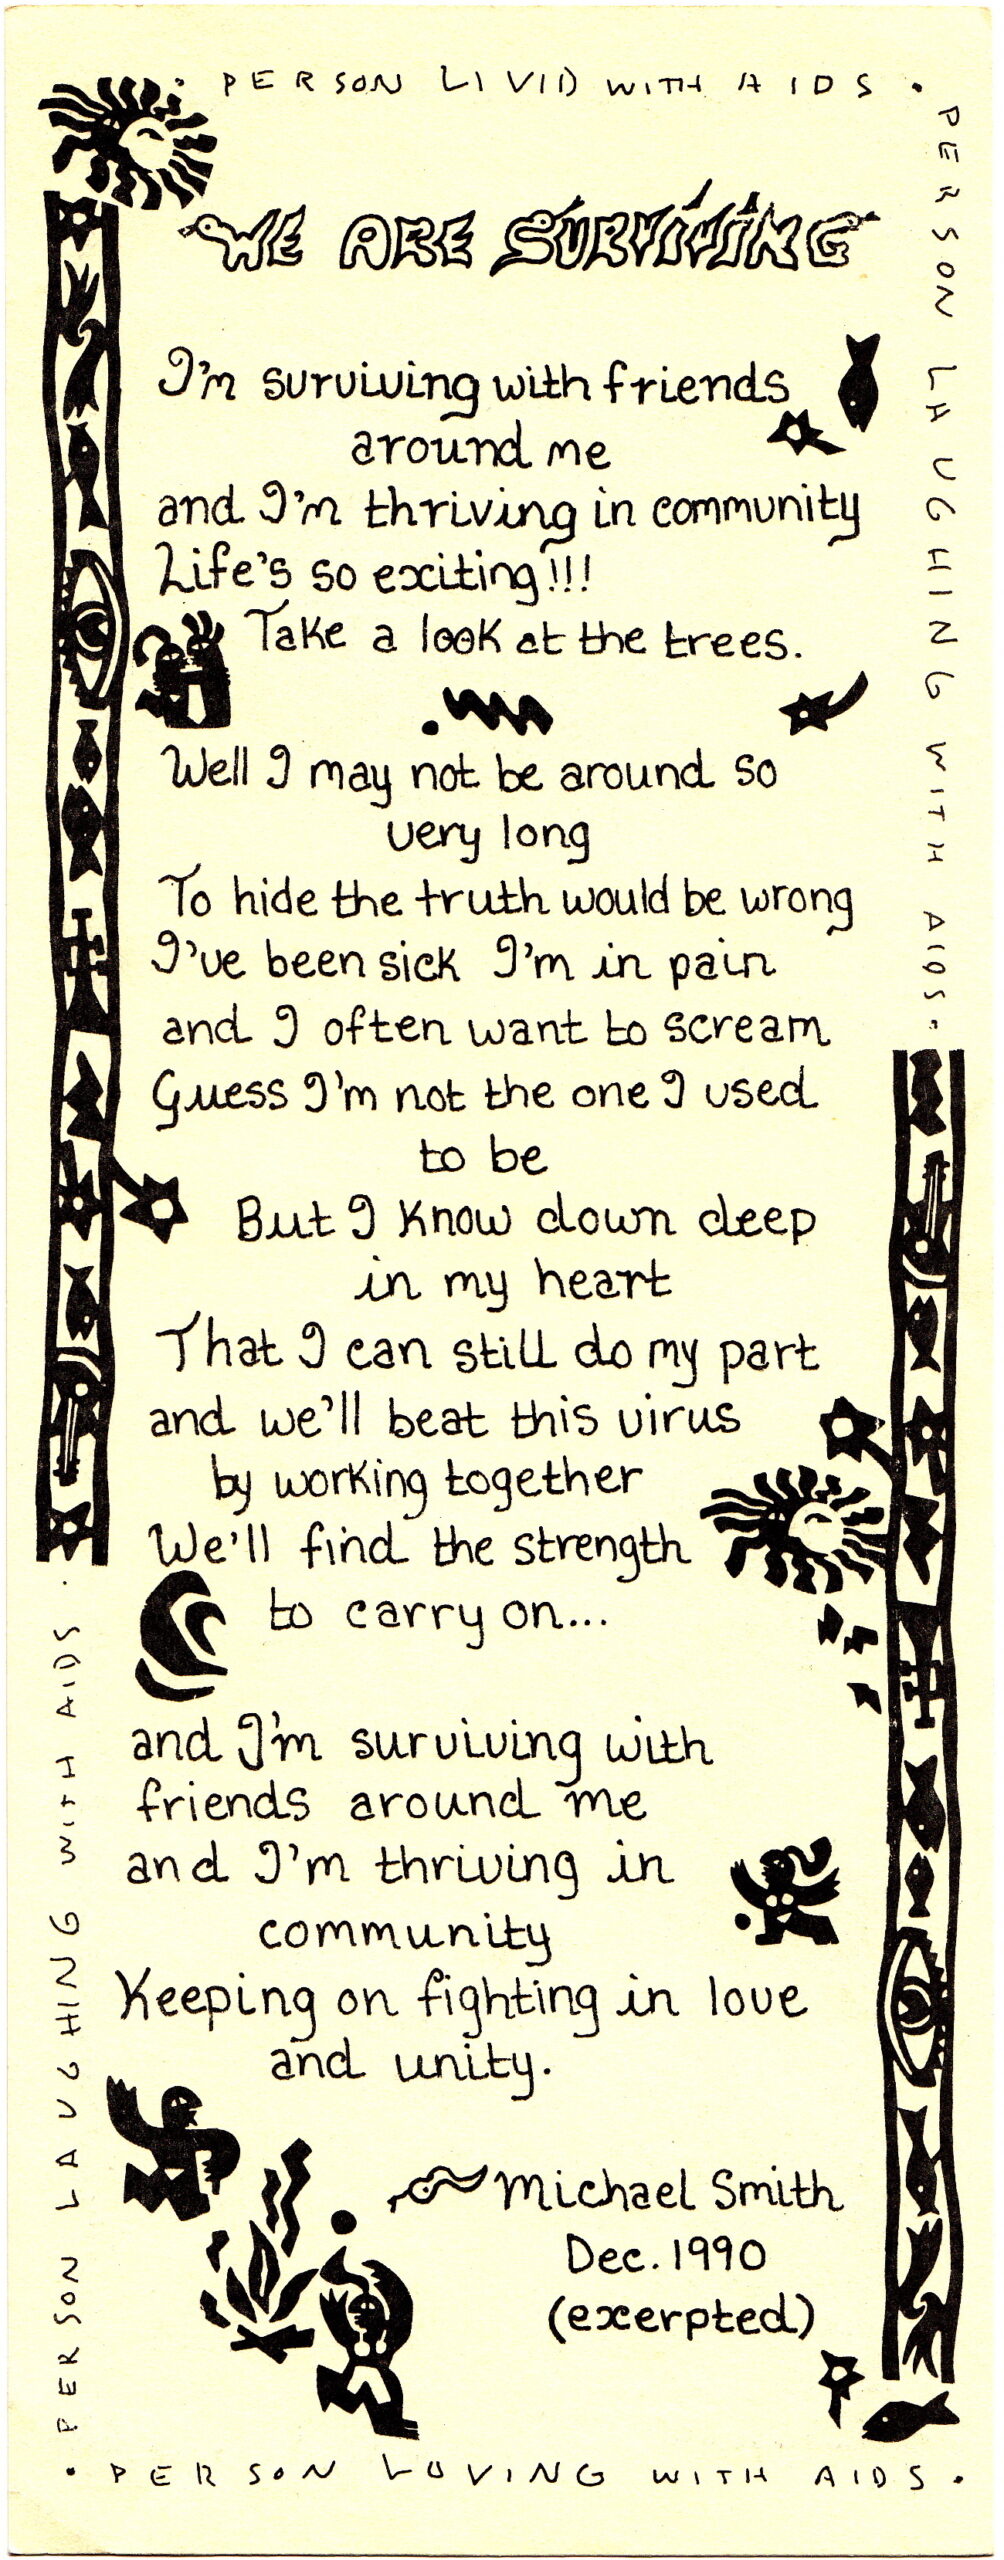 · PERSON LIVID WITH AIDS ·
PERSON LAUGHING WITH AIDS ·
WE ARE SURVIVING
I'm surviving with friends
around me
and I'm thriving in community
Life's so exciting!!!
Take a look at the trees.
Well I may not be around so
very long
To hide the truth would be wrong
I've been sick I'm in pain
and I often want to scream
Guess I'm not the one I used
to be
But I know down deep
in my heart
That I can still do my part
and we'll beat this virus
by working together
We'll find the strength
to carry on...
and I'm surviving with
friends around me
and I'm thriving in
community
Keeping on fighting in love
and unity.
Michael Smith
Dec. 1990
(excerpted)
· PERSON LAUGHING WITH AIDS ·
· PERSON LOVING WITH AIDS ·